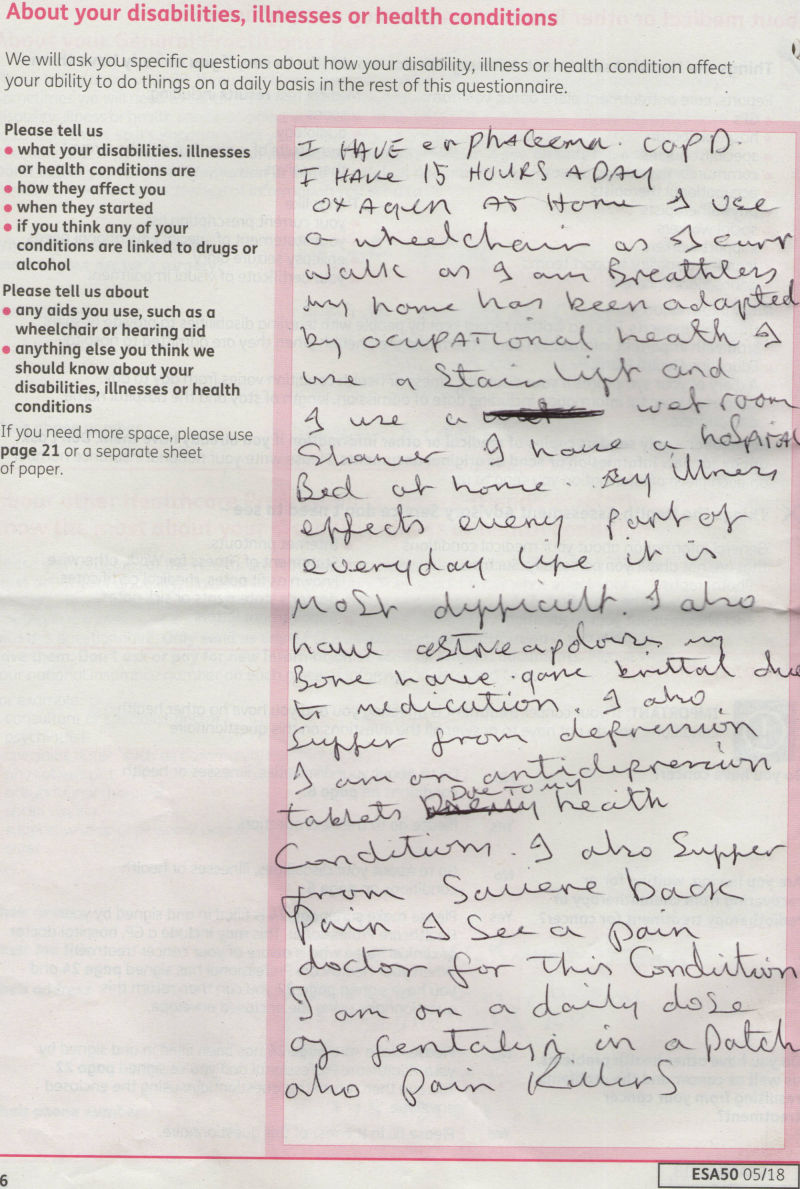 About your disabilities, illnesses or health conditions
We will ask you specific questions about how your disability, illness or health condition affect
your ability to do things on a daily basis in the rest of this questionnaire.
Please tell us
• what your disabilities. illnesses
or health conditions are
• how they affect you
• when they started
• if you think any of your
conditions are linked to drugs or
alcohol
Please tell us about
• any aids you use, such as a
wheelchair or hearing aid
• anything else you think we
should know about your
disabilities, illnesses or health
conditions
If you need more space, please use
page 21 or a separate sheet
of paper.
I HAVE emphaceema. COPD.
I HAVE 15 HOURS A DAY
OXAgen AT Home I use
a wheelchair as I
walk as I am Breathless
my home has been adapted
by OCUPATIONAL heath I
use a Stair lift and
I use a wet room
Shower I have a hospital
Bed at home. My illness
effects every part of
everyday life it is
MOST difficult. I also
have my
Bone have gone brittal due
to medication. I also
Suffer from depression
I am on antidepression
tablets DUE TO my heaith
Conditions. I also Suffer
from Sauere back
Pain I See a pain
doctor for This Condition
I am on a daily dose
of in a Patch
also Pain Killers
6
ESA50 05/18